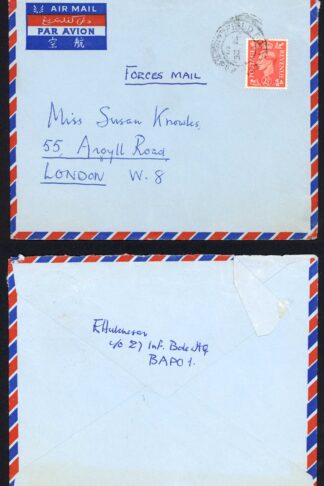 AIR MAIL
PAR AVION
空航
FORCES MAIL
Miss Susan Knowles,
55, Argyll Road,
LONDON W. 8
REVENUE
c/o 27 Inf. Bde HQ
BAPO 1.